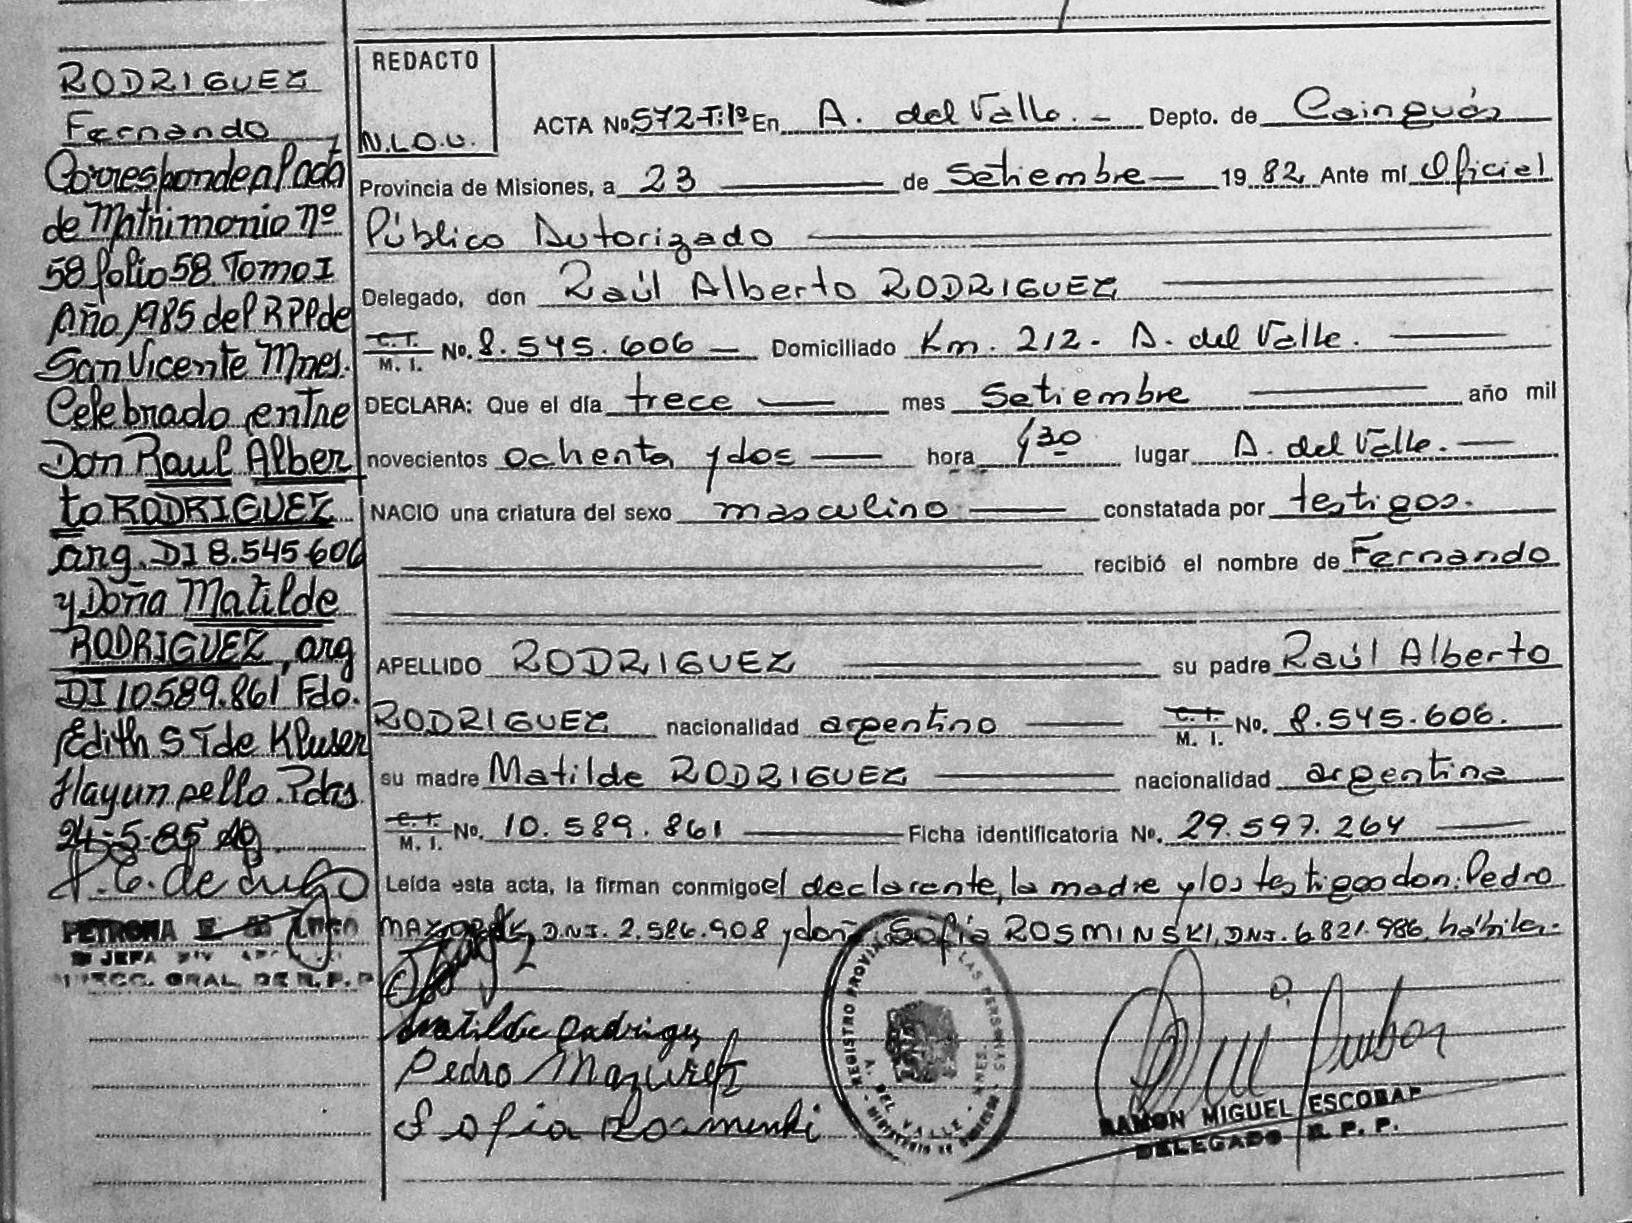 RODRIGUEZ
Fernando
Corresponde al acta
de Matrimonio nº
58 folio 58. Tomo I
Año 1985 del RPP de
San Vicente Mnes.
Celebrado entre
Don Raul Alber
to RODRIGUEZ
arg. DI 8.545.606
y Doña Matilde
RODRIGUEZ, arg
DI 10589.861 Fdo.
Edith S T de Kluser
Hay un sello. Pdas
24-5-85
PETRONA
JEFA
GRAL. DE R. P. P
REDACTO
N.L.O.U.
ACTA No. 572-T:1º En A. del Valle. - Depto. de Cainguás
Provincia de Misiones, a 23 de Setiembre - 19 82 Ante mí Oficial
Público Autorizado
Delegado, don Raúl Alberto RODRIGUEZ
C. I.
M. I. No. 8.545.606 - Domiciliado Km. 212 - A. del Valle.
DECLARA: Que el día trece mes Setiembre año mil
novecientos ochenta y dos hora 30 lugar A. del Valle.
NACIO una criatura del sexo masculino constatada por testigos.
recibió el nombre de Fernando
APELLIDO RODRIGUEZ su padre Raúl Alberto
RODRIGUEZ nacionalidad argentino C. I.
M. I. No. 8.545.606.
su madre Matilde RODRIGUEZ nacionalidad argentina
C. I.
M. I. No. 10.589.861 Ficha identificatoria No. 29.597.264
Leída esta acta, la firman conmigo el declarante, la madre y los testigos don: Pedro
D.N.I. 2.586.908 y doña Sofía ROSMINSKI, DNI. 6.821.986, hábiles.-
Matilde Rodriguez
Pedro
Sofia Rosminski
REGISTRO PROVINCIAL DE LAS PERSONAS
A. DEL VALLE - MNES.
MINISTERIO DE GOBIERNO
RAMON MIGUEL ESCOBAR
DELEGADO R. P. P.